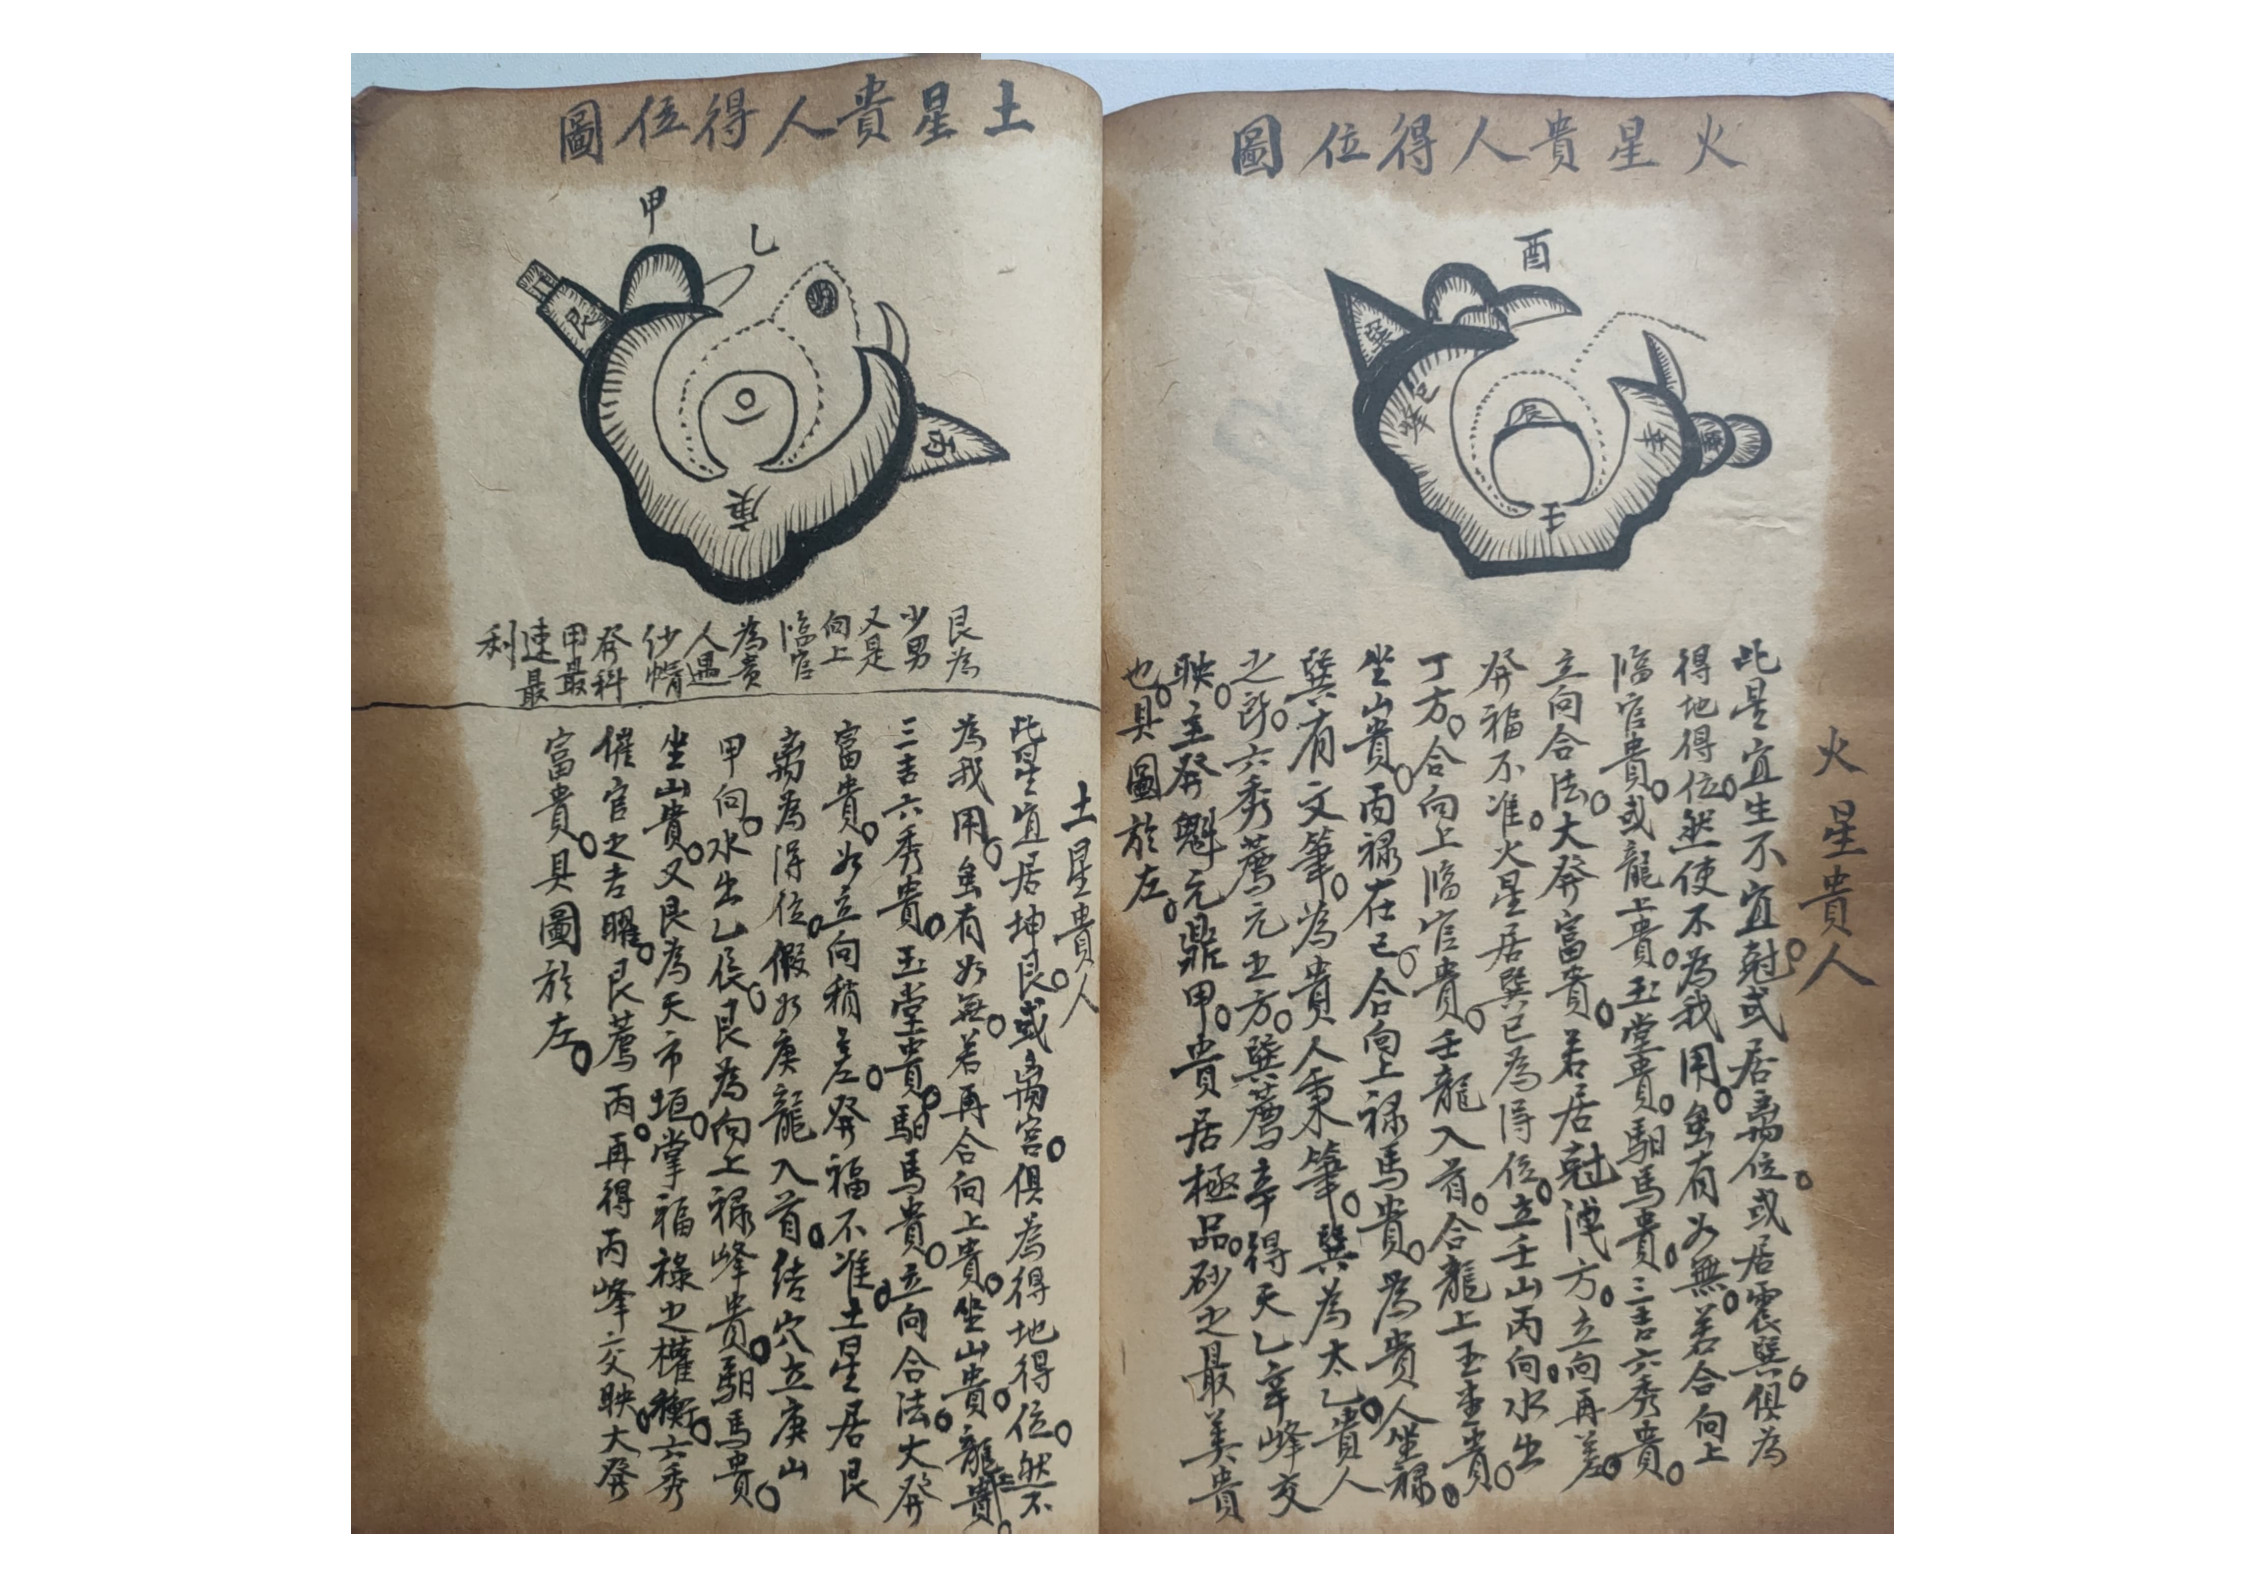 火星貴人得位圖
酉
巽
巳峰
辰
辛
壬
火星貴人
此星宜生不宜尅或居离位或居震巽俱為
得地得位然使不為我用虽有如無若合向上
臨官貴或龍上貴玉堂貴馹馬貴三吉六秀貴
立向合法大發富貴若居尅洩方立向再差
發福不准火星居巽巳為得位立壬山丙向水出
丁方合向上臨官貴壬龍入首合龍上玉堂貴
坐山貴丙禄在巳合向上禄馬貴為貴人坐禄
巽有文筆為貴人秉筆巽為太乙貴人
之所六秀薦元之方巽薦辛得天乙辛峰交
映主發魁元鼎甲貴居極品砂之最美貴
也具圖於左
土星貴人得位圖
甲
乙
艮
丙
庚
艮為
少男
又是
向上
臨官
為貴
人遇
纱帽
發科
甲最
速最
利
土星貴人
此星宜居坤艮或离宫俱為得地得位然不
為我用虽有如無若再合向上貴坐山貴龍貴
三吉六秀貴玉堂貴馹馬貴立向合法大發
富貴如立向稍差發福不准土星居艮
离為得位假如庚龍入首结穴立庚山
甲向水出乙辰艮為向上禄峰貴馹馬貴
坐山貴又艮為天市垣掌福祿之權衡六秀
催官之吉曜艮薦丙再得丙峰交映大發
富貴具圖於左